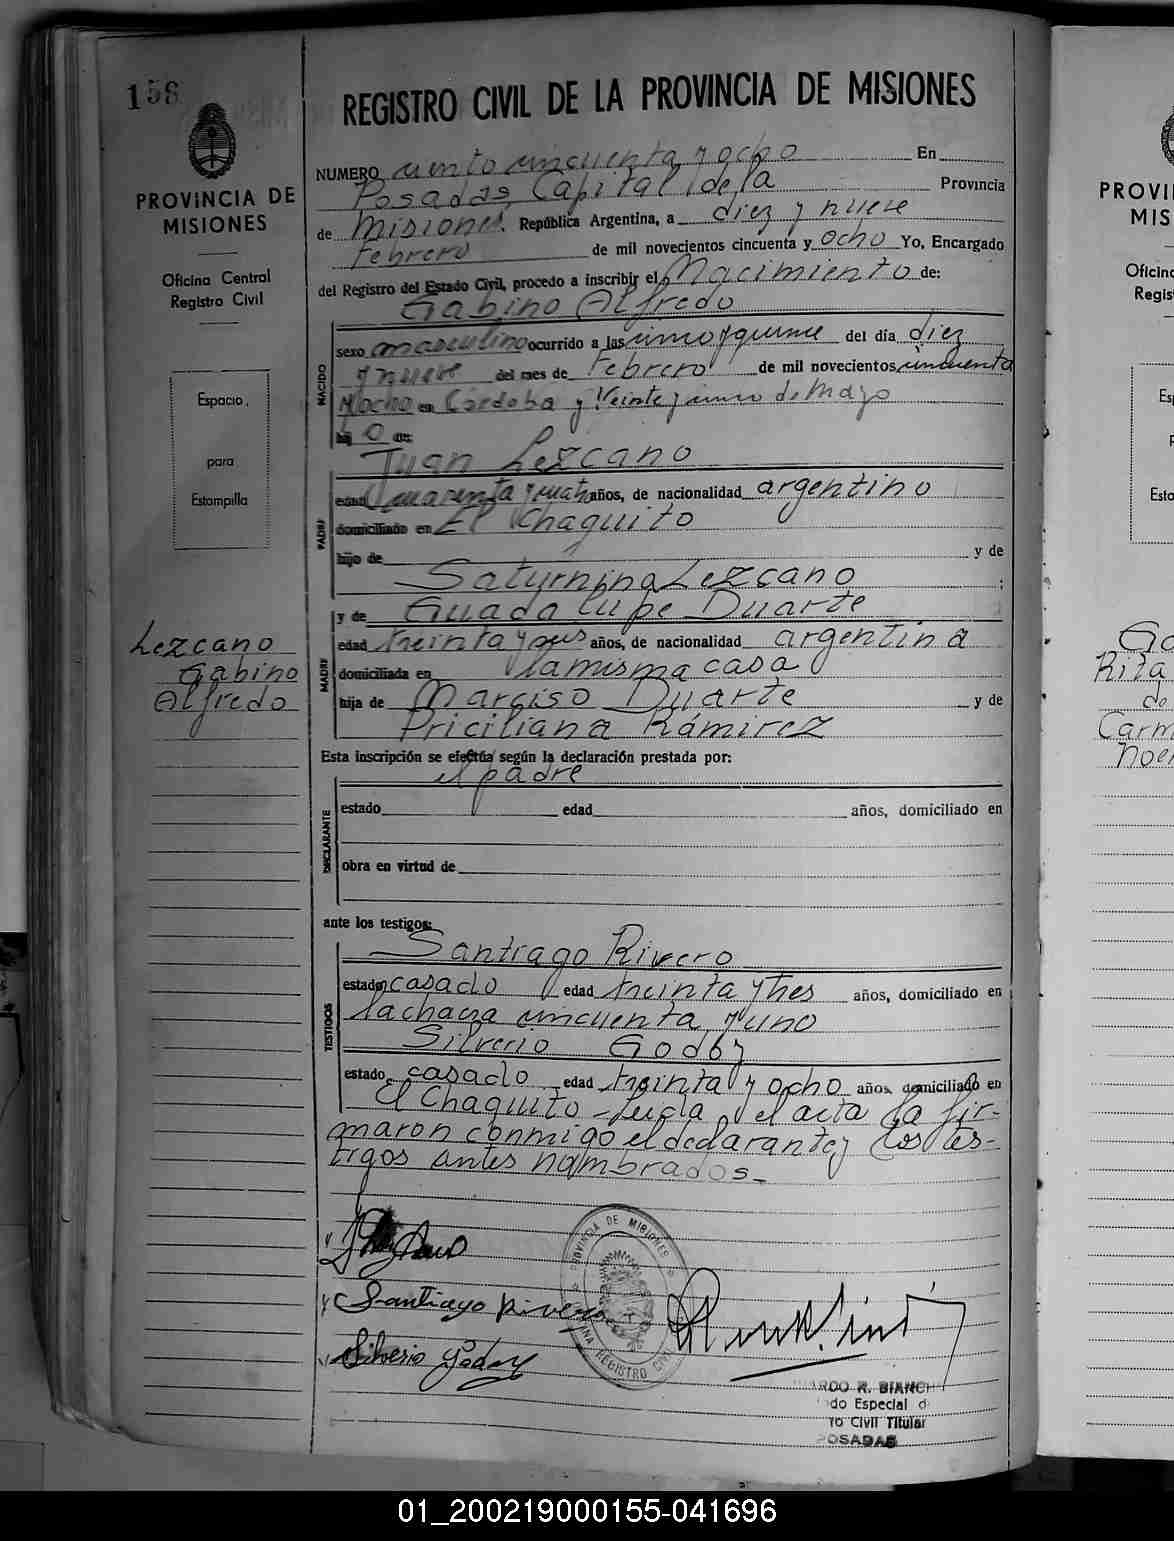 158
PROVINCIA DE
MISIONES
Oficina Central
Registro Civil
Espacio
para
Estampilla
Lezcano
Gabino
Alfredo
REGISTRO CIVIL DE LA PROVINCIA DE MISIONES
NUMERO ciento cincuenta y ocho En
Posadas Capital de la Provincia
de Misiones. República Argentina, a diez y nueve
Febrero de mil novecientos cincuenta y ocho Yo, Encargado
del Registro del Estado Civil, procedo a inscribir el Nacimiento de:
Gabino Alfredo
NACIDO
sexo masculino ocurrido a las cinco y quince del día diez
y nueve del mes de Febrero de mil novecientos cincuenta
y ocho en Córdoba y Veinte y cinco de Mayo
hij o de:
Juan Lezcano
PADRE
edad cuarenta y cuatro años, de nacionalidad argentino
domiciliado en El Chaquito
hijo de y de
Saturnina Lezcano ;
y de Guadalupe Duarte
MADRE
edad treinta y seis años, de nacionalidad argentina
domiciliada en la misma casa
hija de Narciso Duarte y de
Priciliana Rámirez
Esta inscripción se efectúa según la declaración prestada por:
el padre
DECLARANTE
estado edad años, domiciliado en
obra en virtud de
ante los testigos:
Santiago Rivero
TESTIGOS
estado casado edad treinta y tres años, domiciliado en
la chacra cincuenta y uno
Silverio Godoy
estado casado edad treinta y ocho años, domiciliado en
El Chaquito - Leída el acta la fir-
maron conmigo el declarante y los tes-
tigos antes nombrados.-
Santiago Rivero
Silverio Godoy
PROVINCIA DE MISIONES
REGISTRO CIVIL
ARDO R. BIANCHI
do Especial d
ro Civil Titular
POSADAS
PROVI
MIS
Oficina
Regis
Es
Esta
Go
Rita
de
Carm
Noe
01_200219000155-041696